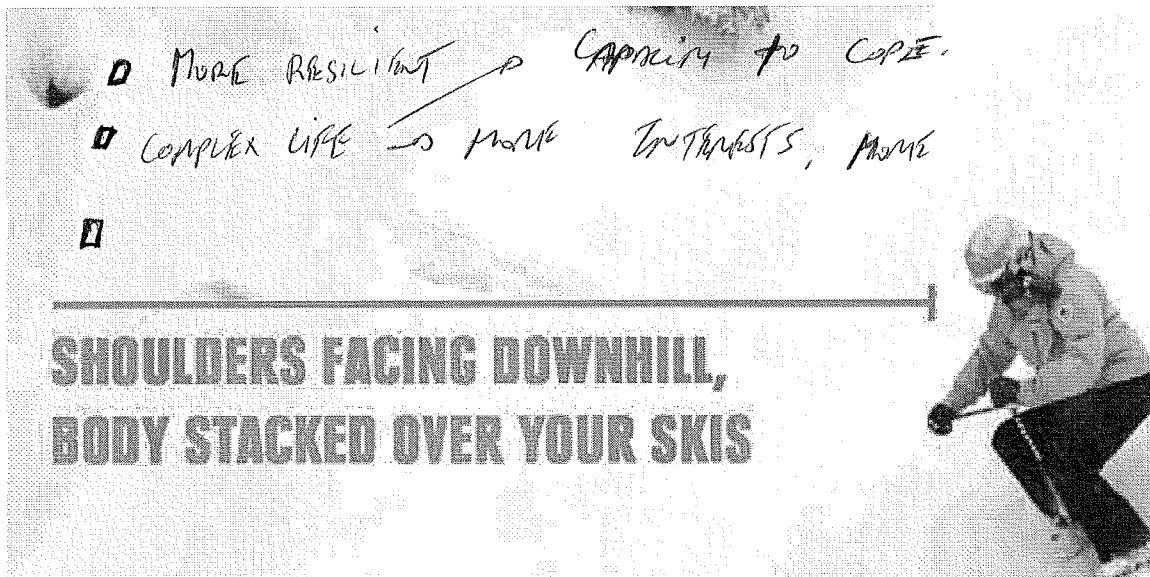 MORE RESILIENT → CAPACITY TO COPE.
COMPLEX LIFE → MORE INTERESTS, MORE
SHOULDERS FACING DOWNHILL,
BODY STACKED OVER YOUR SKIS